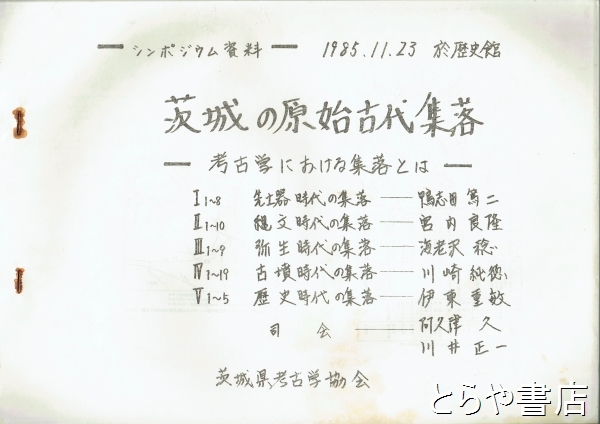 シンポジウム資料 1985.11.23 於歴史館
茨城の原始古代集落
考古学における集落とは
Ⅰ1~8 先土器時代の集落 —— 鴨志田篤二
Ⅱ1~10 縄文時代の集落 —— 宮内良隆
Ⅲ1~9 弥生時代の集落 —— 海老沢稔
Ⅳ1~19 古墳時代の集落 —— 川崎純徳
Ⅴ1~5 歴史時代の集落 —— 伊東重敏
司会 —— 阿久津久
川井正一
茨城県考古学協会
とらや書店